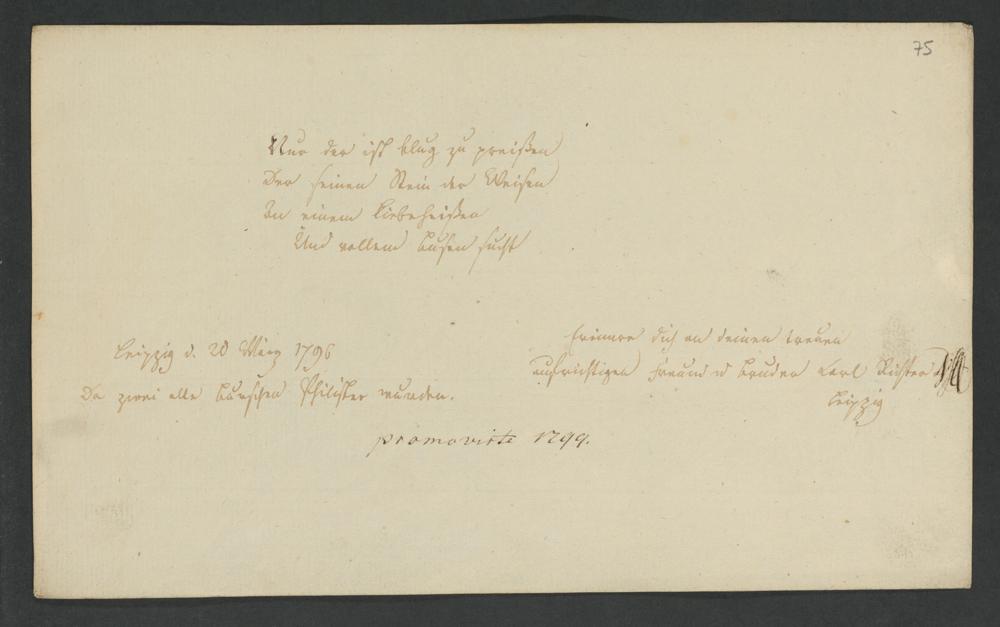 75
Nur der ist klug zu preißen
Der seinen Stein der Weisen
In einem Liebeheißen
Und vollem Busen sucht
Leipzig d. 20 März 1796
Da zwei alte Burschen Philister wurden.
Erinnre dich an deinen treuen
aufrichtigen Freund u Bruder Carl Richter
Leipzig
promovirte 1799.